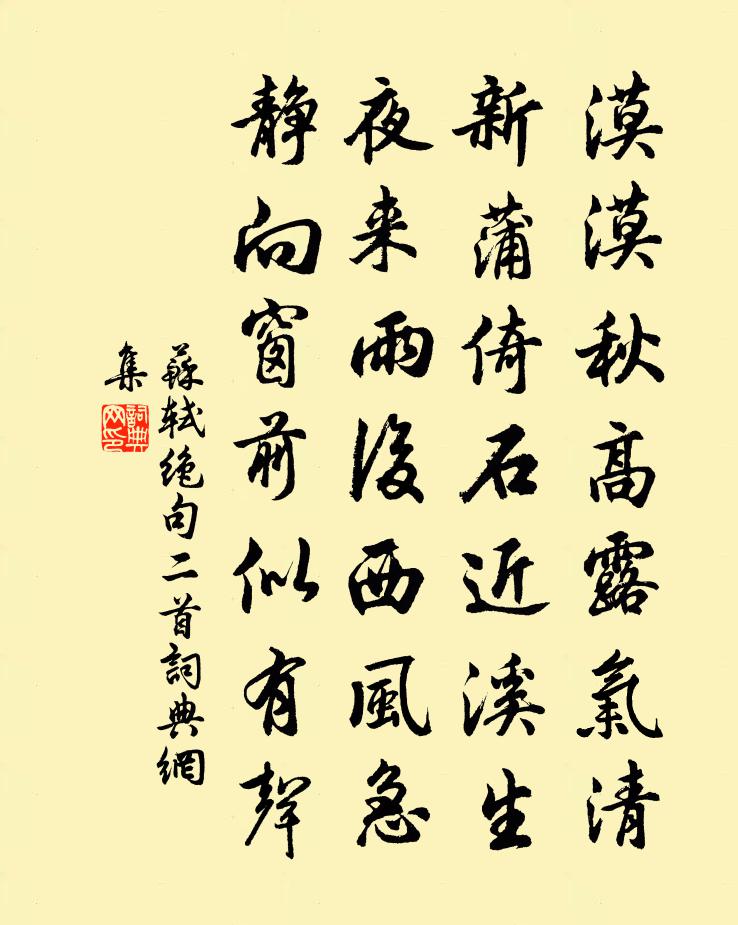 漠漠秋高露氣清
新蒲倚石近溪生
夜来雨後西風急
静向窗前似有聲
蘇軾絶句二首詞典網
集
詞典
网印